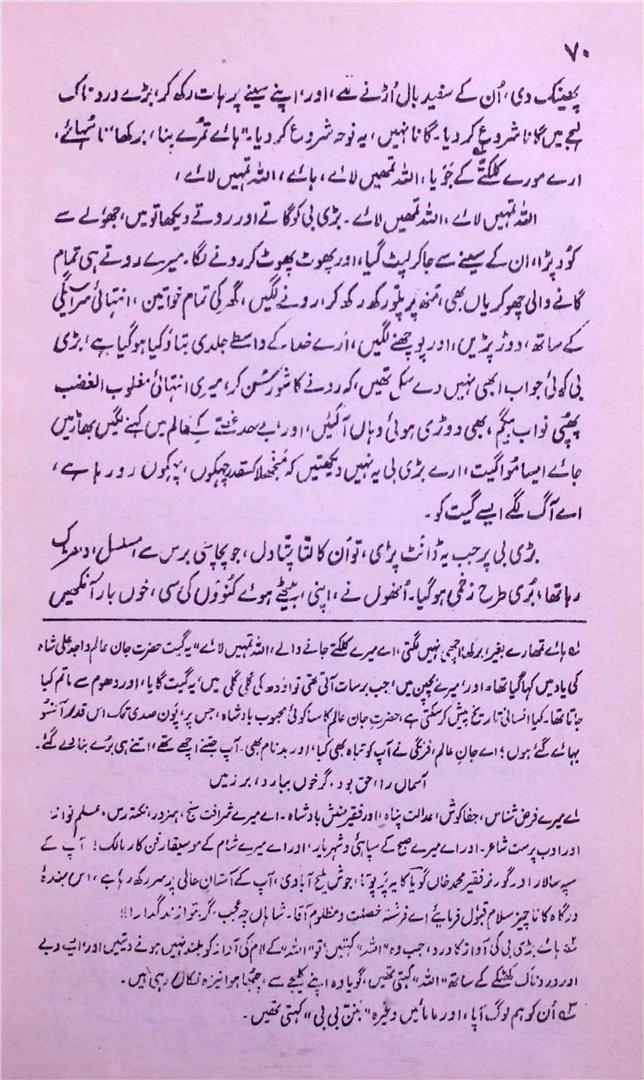 ۷۰
پھینک دی، اُن کے سفید بال اُڑنے لگے، اور، اپنے سینے پر ہات رکھ کر، بڑے دردناک
لہجے میں گانا شروع کر دیا۔ گانا نہیں، یہ نوحہ شروع کر دیا۔ "ہائے تمرے بنا، برکھا نا سُہائے،
ارے مورے کلکتے کے جَوَیا، اللہ تمھیں لائے، ہائے، اللہ تمہیں لائے،
اللہ تمہیں لائے، اللہ تمھیں لائے۔ بڑی بی کو گاتے اور روتے دیکھا تو میں، جھولے سے
کود پڑا، ان کے سینے سے جا کر لپٹ گیا، اور پھوٹ پھوٹ کر رونے لگا۔ میرے روتے ہی تمام
گانے والی چھوکریاں بھی، منھ پر پلّو رکھ رکھ کر، رونے لگیں، گھر کی تمام خواتین، انتہائی سراسیمگی
کے ساتھ، دوڑ پڑیں، اور پوچھنے لگیں، ارے خدا کے واسطے جلدی بتاؤ کیا ہو گیا ہے، بڑی
بی کوئی جواب ابھی نہیں دے سکی تھیں، کہ رونے کا شور سُن کر، میری انتہائی مغلوب الغضب
پھپی نواب بیگم، بھی دوڑی ہوئی وہاں آ گئیں، اور، بے حد غصّے کے عالم میں کہنے لگیں بھاڑ میں
جائے ایسا مُوا گیت، ارے بڑی بی یہ نہیں دیکھتیں کہ مُنجھلا کسقدر چہکوں، پہکوں رو رہا ہے،
اے آگ لگے ایسے گیت کو۔
بڑی بی پر جب یہ ڈانٹ پڑی، تو اُن کا لتا پتا دل، جو پچاسی برس سے، مسلسل، دھڑک
رہا تھا، بُری طرح زخمی ہو گیا۔ اُنھوں نے، اپنی، بیٹھے ہوئے کنوؤں کی سی، خوں بار آنکھیں
۱؎ ہائے تمھارے بغیر، برکھا اچھی نہیں لگتی، اے میرے کلکتے جانے والے، اللہ تمہیں لائے" یہ گیت حضرت جان عالم واجد علی شاہ
کی یاد میں کہا گیا تھا۔ اور، میرے بچپن میں، جب برسات آتی تھی تو اودھ کی گلی گلی میں، یہ گیت گایا، اور دھوم سے ماتم کیا
جاتا تھا۔ کیا انسانی تاریخ پیش کر سکتی ہے، حضرتِ جان عالم کا سا کوئی محبوب بادشاہ، جس پر، پون صدی تک اس قدر آنسو
بہائے گئے ہوں؛ اے جانِ عالم، افرنگی نے آپ کو تباہ بھی کیا، اور بدنام بھی۔ آپ جتنے اچھے تھے، اتنے ہی بُرے بنائے گئے۔
آسماں را، حق بود، گر خوں ببارد، بر زمیں
اے میرے فرض شناس، جفا کوش، عدالت پناہ، اور فقیر منش بادشاہ۔ اے میرے شرافت سنج، ہنرور، نکتہ رس، علم نواز
اور ادب پرست شاعر۔ اور اے میرے صبح کے سپاہی و شہریار، اور اے میرے شام کے موسیقار فن کار مالک! آپ کے
سپہ سالار، اور گورنر فقیر محمد خاں گویا کا پرپوتا، جوش ملیح آبادی، آپ کے آستانِ عالی پر سر رکھ رہا ہے، اس بندۂ
درگاہ کا ناچیز سلام قبول فرمایئے اے فرشتہ خصلت و مظلوم آقا۔ شاہاں چہ عجب، گر بنوازند گدا را!!
۲؎ ہائے بڑی بی کی آواز کا درد، جب وہ "اللہ" کہتیں، تو "اللہ" کے لام کی آواز کو بلند نہیں ہونے دیتیں اور، ایسے دبے
اور دردناک کھٹکے کے ساتھ "اللہ" کہتی تھیں، گویا وہ اپنے کلیجے سے، چبھا ہوا نیزہ نکال رہی ہیں۔
۳؎ اُن کو ہم لوگ آپا، اور مامائیں وغیرہ "بنّن بی بی" کہتی تھیں۔